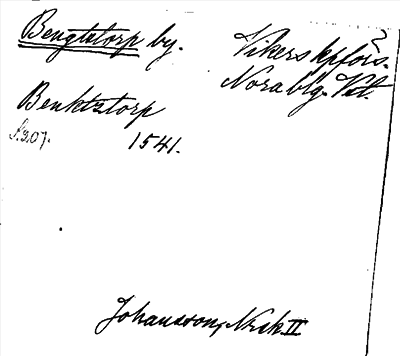 Bengtstorp by.
Vikers kpförs.
Nora blg. Vstl.
Benktztorp
S. 207.
1541.
Johansson, Norask. II